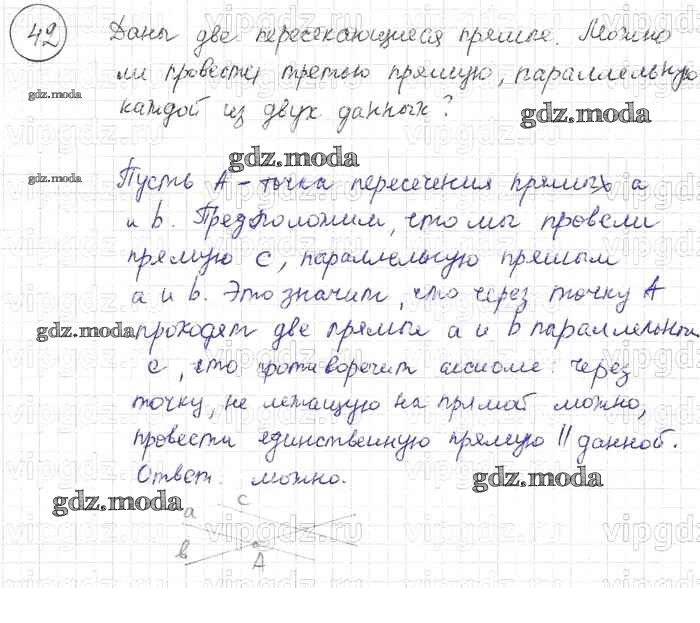 42 Даны две пересекающиеся прямые. Можно
ли провести третью прямую, параллельную
gdz.moda
каждой из двух данных?
gdz.moda
gdz.moda
gdz.moda
Пусть А - точка пересечения прямых а
и b. Предположим, что мы провели
прямую с, параллельную прямым
а и b. Это значит, что через точку А
gdz.moda
проходят две прямые а и b параллельной
с, что противоречит аксиоме: через
точку, не лежащую на прямой можно,
провести единственную прямую || данной.
Ответ: можно.
gdz.moda
gdz.moda
а
с
в
А
vipgdz.ru